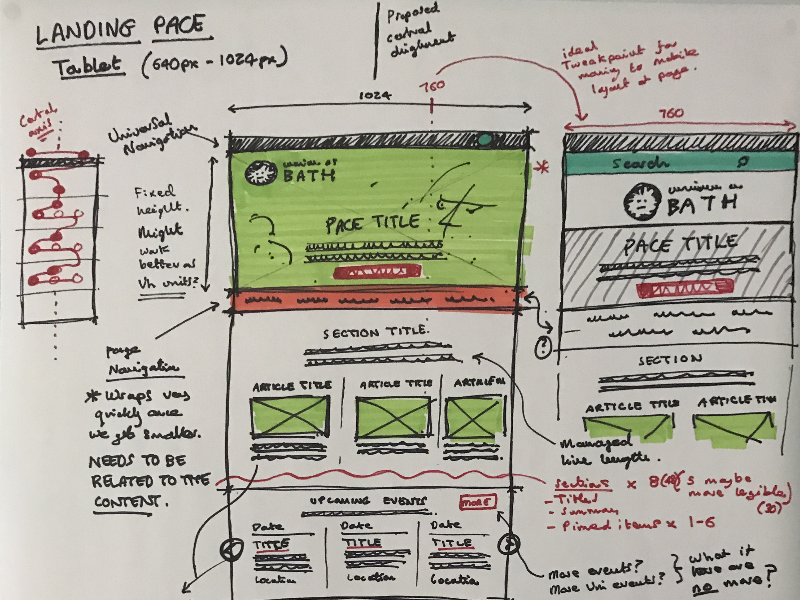 LANDING PAGE
Tablet (640px - 1024px)
Proposed
central
alignment
ideal
Tweakpoint for
moving to mobile
layout of page.
1024
760
760
Central
axis
Universal
Navigation
Fixed
height.
Might
work
better as
Vh units?
BATH
PAGE TITLE
*
Search
BATH
PAGE TITLE
?
page
Navigation
* Wraps very
quickly once
we get smaller.
NEEDS TO BE
RELATED TO THE
CONTENT.
SECTION TITLE.
ARTICLE TITLE
ARTICLE TITLE
SECTION
ARTICLE TITLE
Managed
line lengths.
sections x 8
's maybe
more legible)
- Titles
- Summary
- Pinned items x 1-6
UPCOMING EVENTS
MORE
Date
TITLE
Location
Date
TITLE
Location
Date
TITLE
Location
More events?
More Uni events?
What if
there are
no more?